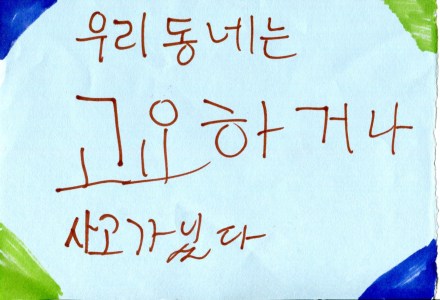 우리 동네는
고요하거나
사고가